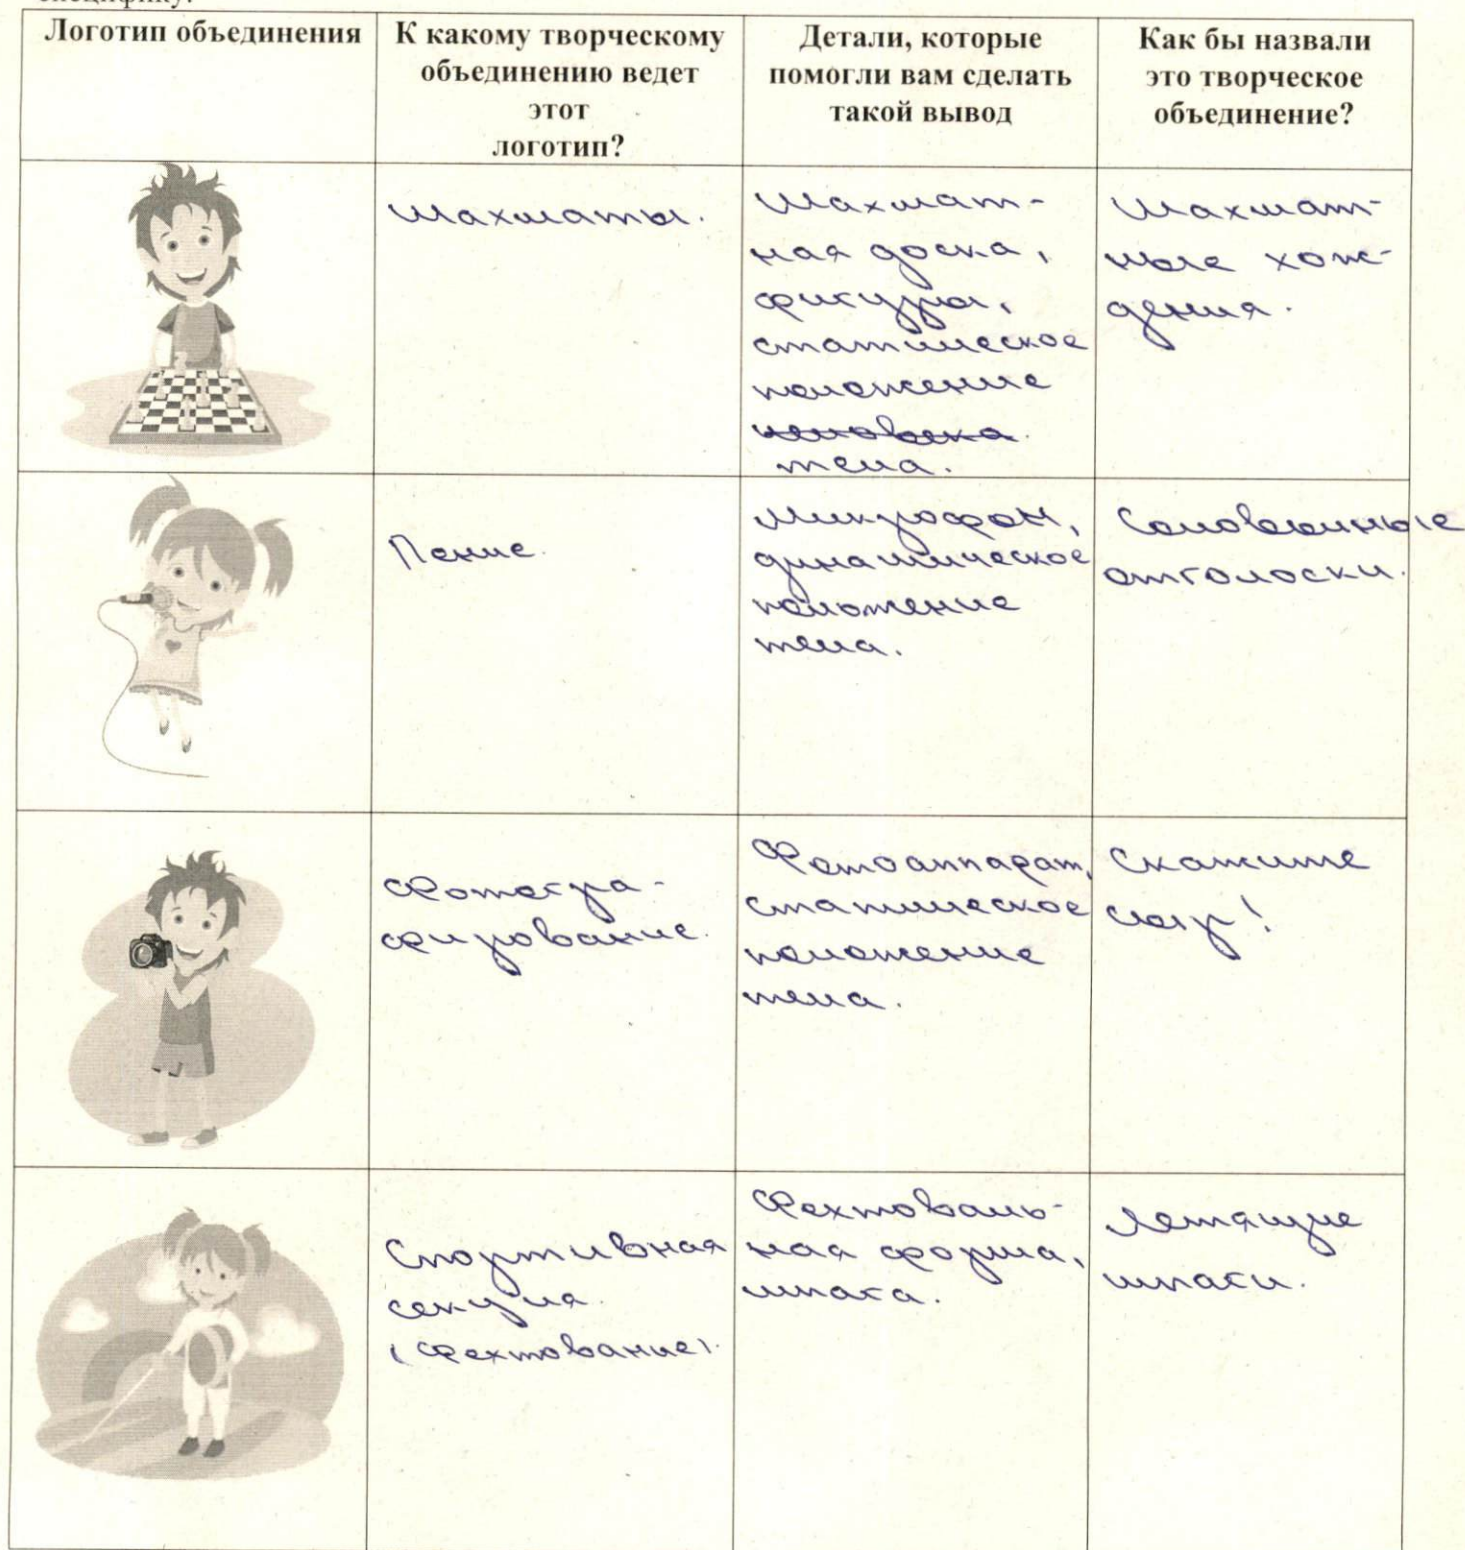 специфику.
Логотип объединения
К какому творческому
объединению ведет
этот
логотип?
Детали, которые
помогли вам сделать
такой вывод
Как бы назвали
это творческое
объединение?
Шахматы.
Шахмат-
ная доска,
фигуры,
статическое
положение
человека.
тела.
Шахмат-
ные хож-
дения.
Пение.
Микрофон,
динамическое
положение
тела.
Соловьиные
отголоски.
Фотогра-
фирование.
Фотоаппарат,
статическое
положение
тела.
Скажите
сыр!
Спортивная
секция.
(Фехтование).
Фехтоваль-
ная форма,
шпага.
Летящие
шпаги.